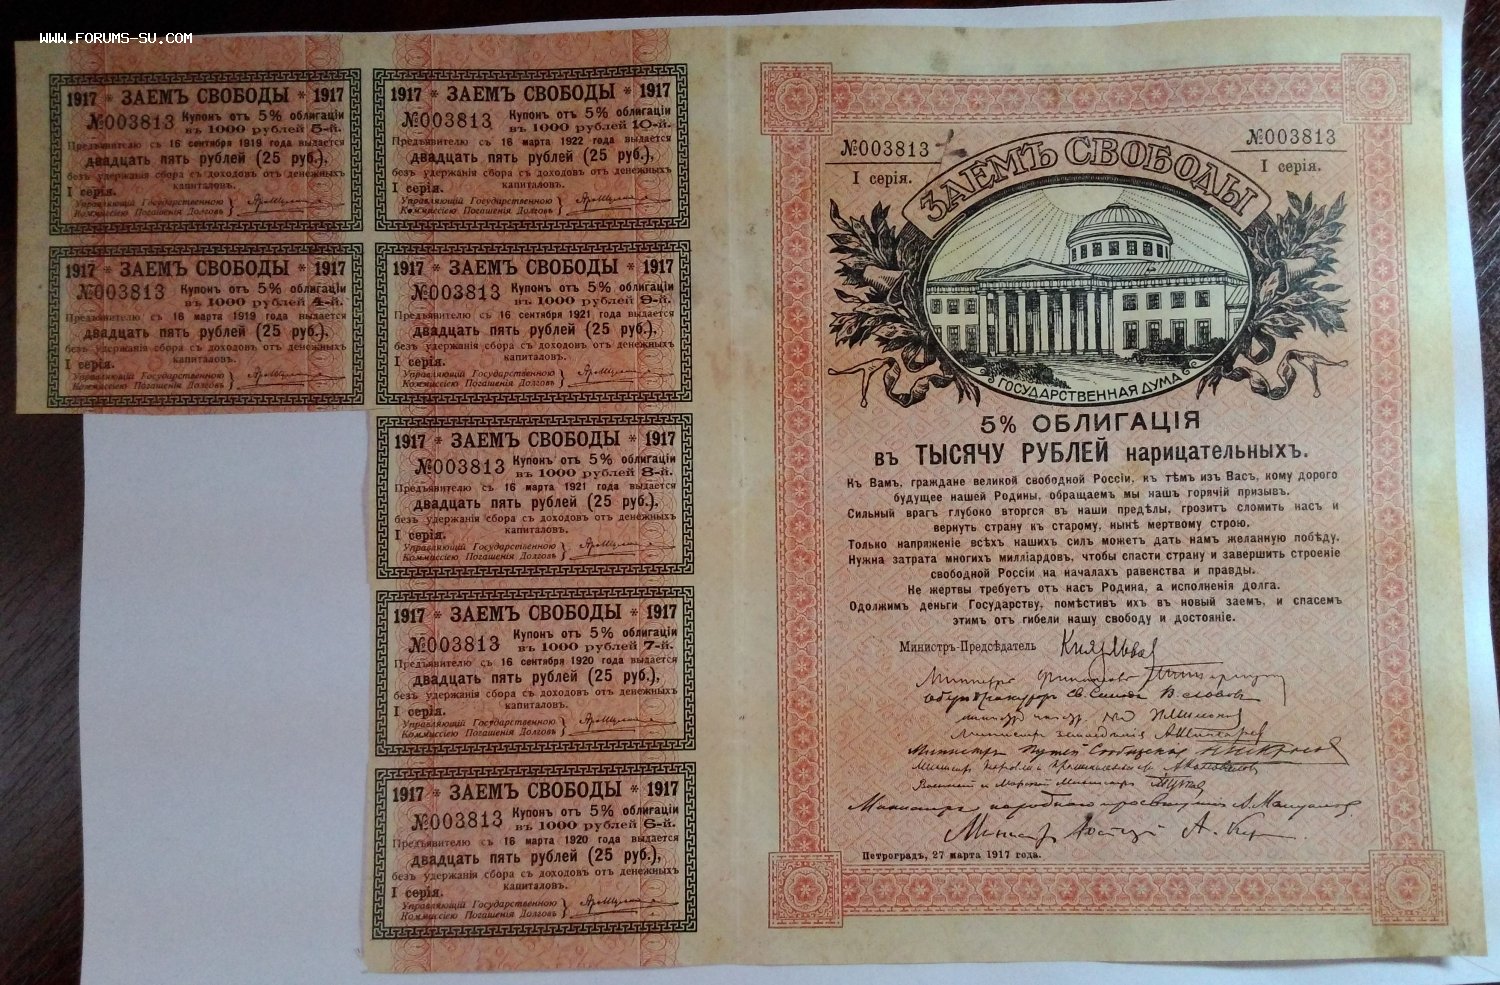 WWW.FORUMS-SU.COM
1917 * ЗАЕМЪ СВОБОДЫ * 1917
№003813 Купонъ отъ 5% облигаціи
въ 1000 рублей 5-й.
Предъявителю съ 16 сентября 1919 года выдается
двадцать пять рублей (25 руб.),
безъ удержанія сбора съ доходовъ отъ денежныхъ
капиталовъ.
I серія.
Управляющій Государственною
Коммиссіею Погашенія Долговъ
1917 * ЗАЕМЪ СВОБОДЫ * 1917
№003813 Купонъ отъ 5% облигаціи
въ 1000 рублей 4-й.
Предъявителю съ 16 марта 1919 года выдается
двадцать пять рублей (25 руб.),
безъ удержанія сбора съ доходовъ отъ денежныхъ
капиталовъ.
I серія.
Управляющій Государственною
Коммиссіею Погашенія Долговъ
1917 * ЗАЕМЪ СВОБОДЫ * 1917
№003813 Купонъ отъ 5% облигаціи
въ 1000 рублей 10-й.
Предъявителю съ 16 марта 1922 года выдается
двадцать пять рублей (25 руб.),
безъ удержанія сбора съ доходовъ отъ денежныхъ
капиталовъ.
I серія.
Управляющій Государственною
Коммиссіею Погашенія Долговъ
1917 * ЗАЕМЪ СВОБОДЫ * 1917
№003813 Купонъ отъ 5% облигаціи
въ 1000 рублей 9-й.
Предъявителю съ 16 сентября 1921 года выдается
двадцать пять рублей (25 руб.),
безъ удержанія сбора съ доходовъ отъ денежныхъ
капиталовъ.
I серія.
Управляющій Государственною
Коммиссіею Погашенія Долговъ
1917 * ЗАЕМЪ СВОБОДЫ * 1917
№003813 Купонъ отъ 5% облигаціи
въ 1000 рублей 8-й.
Предъявителю съ 16 марта 1921 года выдается
двадцать пять рублей (25 руб.),
безъ удержанія сбора съ доходовъ отъ денежныхъ
капиталовъ.
I серія.
Управляющій Государственною
Коммиссіею Погашенія Долговъ
1917 * ЗАЕМЪ СВОБОДЫ * 1917
№003813 Купонъ отъ 5% облигаціи
въ 1000 рублей 7-й.
Предъявителю съ 16 сентября 1920 года выдается
двадцать пять рублей (25 руб.),
безъ удержанія сбора съ доходовъ отъ денежныхъ
капиталовъ.
I серія.
Управляющій Государственною
Коммиссіею Погашенія Долговъ
1917 * ЗАЕМЪ СВОБОДЫ * 1917
№003813 Купонъ отъ 5% облигаціи
въ 1000 рублей 6-й.
Предъявителю съ 16 марта 1920 года выдается
двадцать пять рублей (25 руб.),
безъ удержанія сбора съ доходовъ отъ денежныхъ
капиталовъ.
I серія.
Управляющій Государственною
Коммиссіею Погашенія Долговъ
№003813 №003813
I серія. I серія.
ЗАЕМЪ СВОБОДЫ
ГОСУДАРСТВЕННАЯ ДУМА
5% ОБЛИГАЦІЯ
въ ТЫСЯЧУ РУБЛЕЙ нарицательныхъ.
Къ Вамъ, граждане великой свободной Россіи, къ тѣмъ изъ Васъ, кому дорого
будущее нашей Родины, обращаемъ мы нашъ горячій призывъ.
Сильный врагъ глубоко вторгся въ наши предѣлы, грозитъ сломить насъ и
вернуть страну къ старому, нынѣ мертвому строю.
Только напряженіе всѣхъ нашихъ силъ можетъ дать намъ желанную побѣду.
Нужна затрата многихъ милліардовъ, чтобы спасти страну и завершить строеніе
свободной Россіи на началахъ равенства и правды.
Не жертвы требуетъ отъ насъ Родина, а исполненія долга.
Одолжимъ деньги Государству, помѣстивъ ихъ въ новый заемъ, и спасемъ
этимъ отъ гибели нашу свободу и достояніе.
Министръ-Предсѣдатель Князь Львов
Министръ финансовъ
Оберъ Прокуроръ Св. Синода В. Львовъ
Министръ земледѣлія А. Шингарев
Министръ Путей Сообщенія Н. Некрасов
Министръ Торговли и Промышленности А. Коновалов
Военный и Морской Министръ
Министръ народнаго просвѣщенія А. Мануилов
Министръ Юстиціи А. Кер
Петроградъ, 27 марта 1917 года.